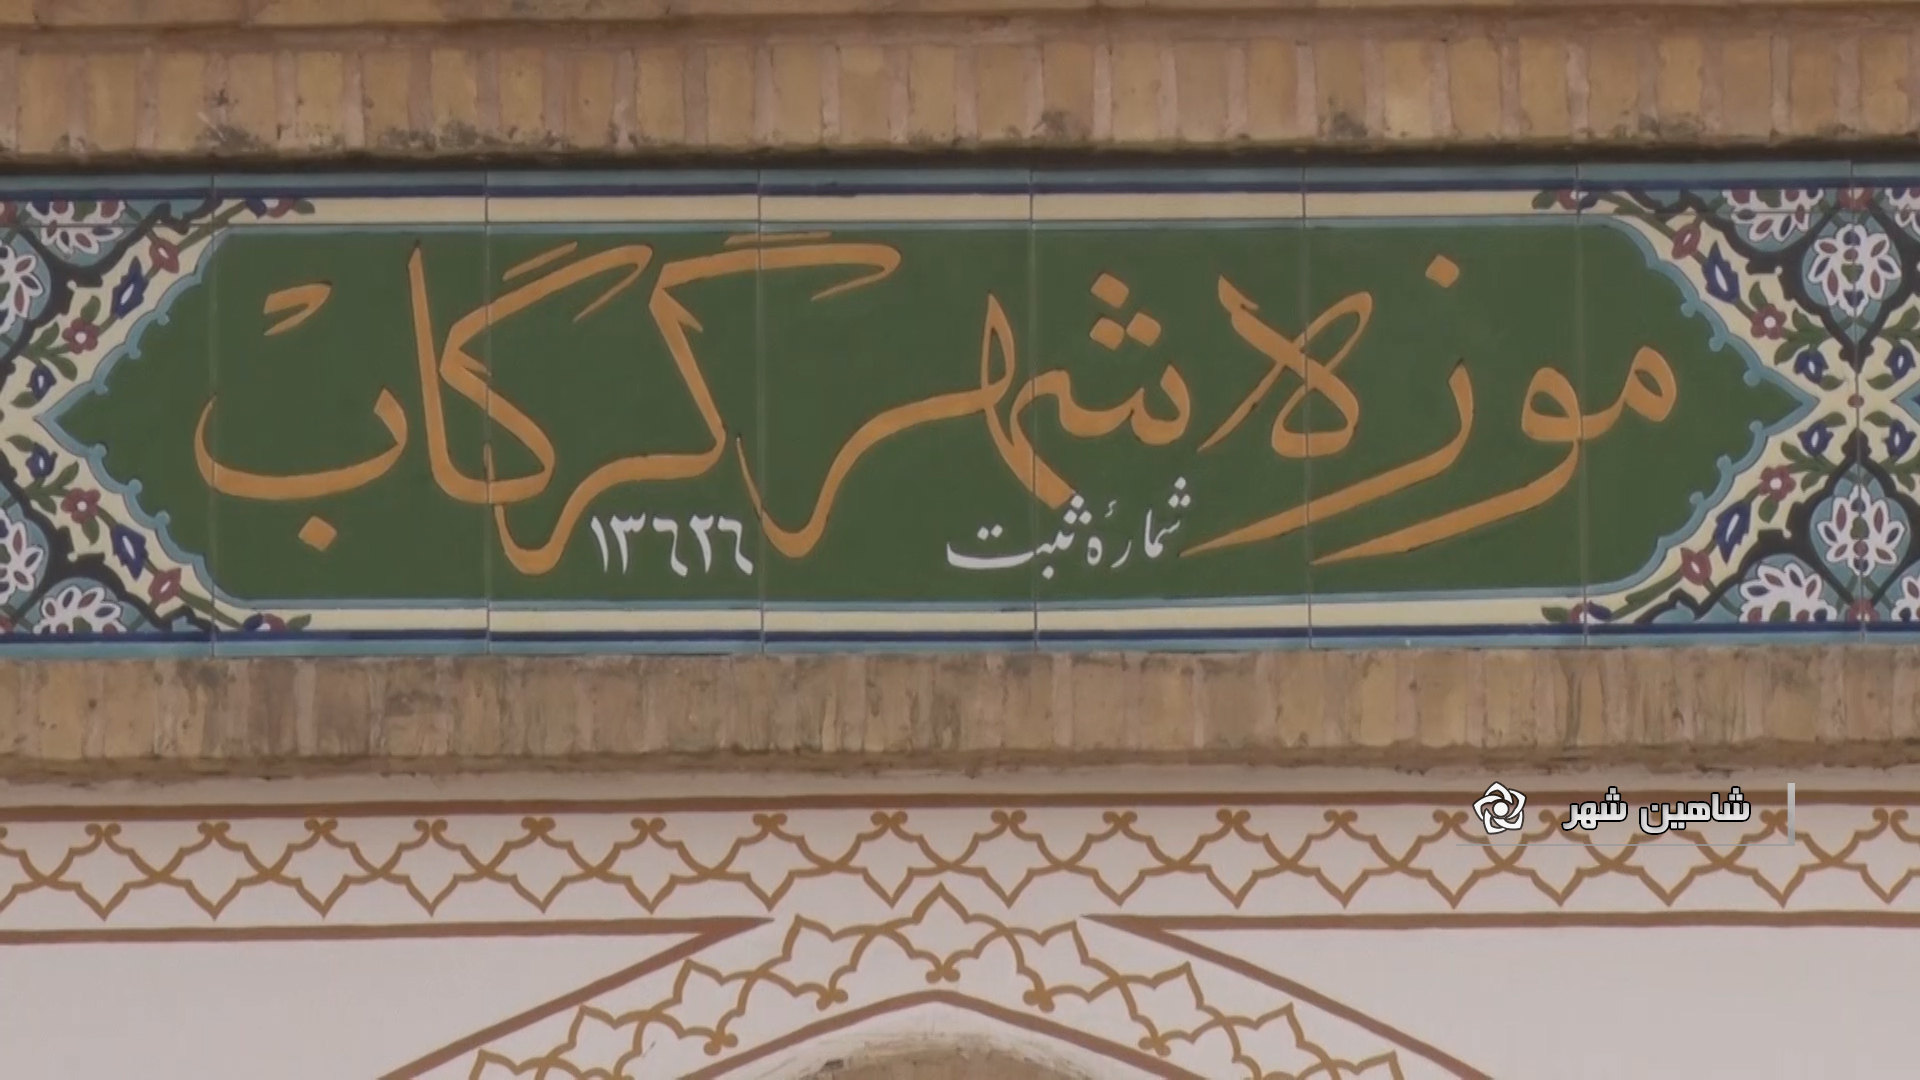 موزه شهر گرگاب
شمارهٔ ثبت ۱۳۶۲۶
شاهین شهر